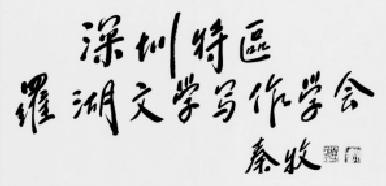 深圳特區
羅湖文学写作学会
秦牧